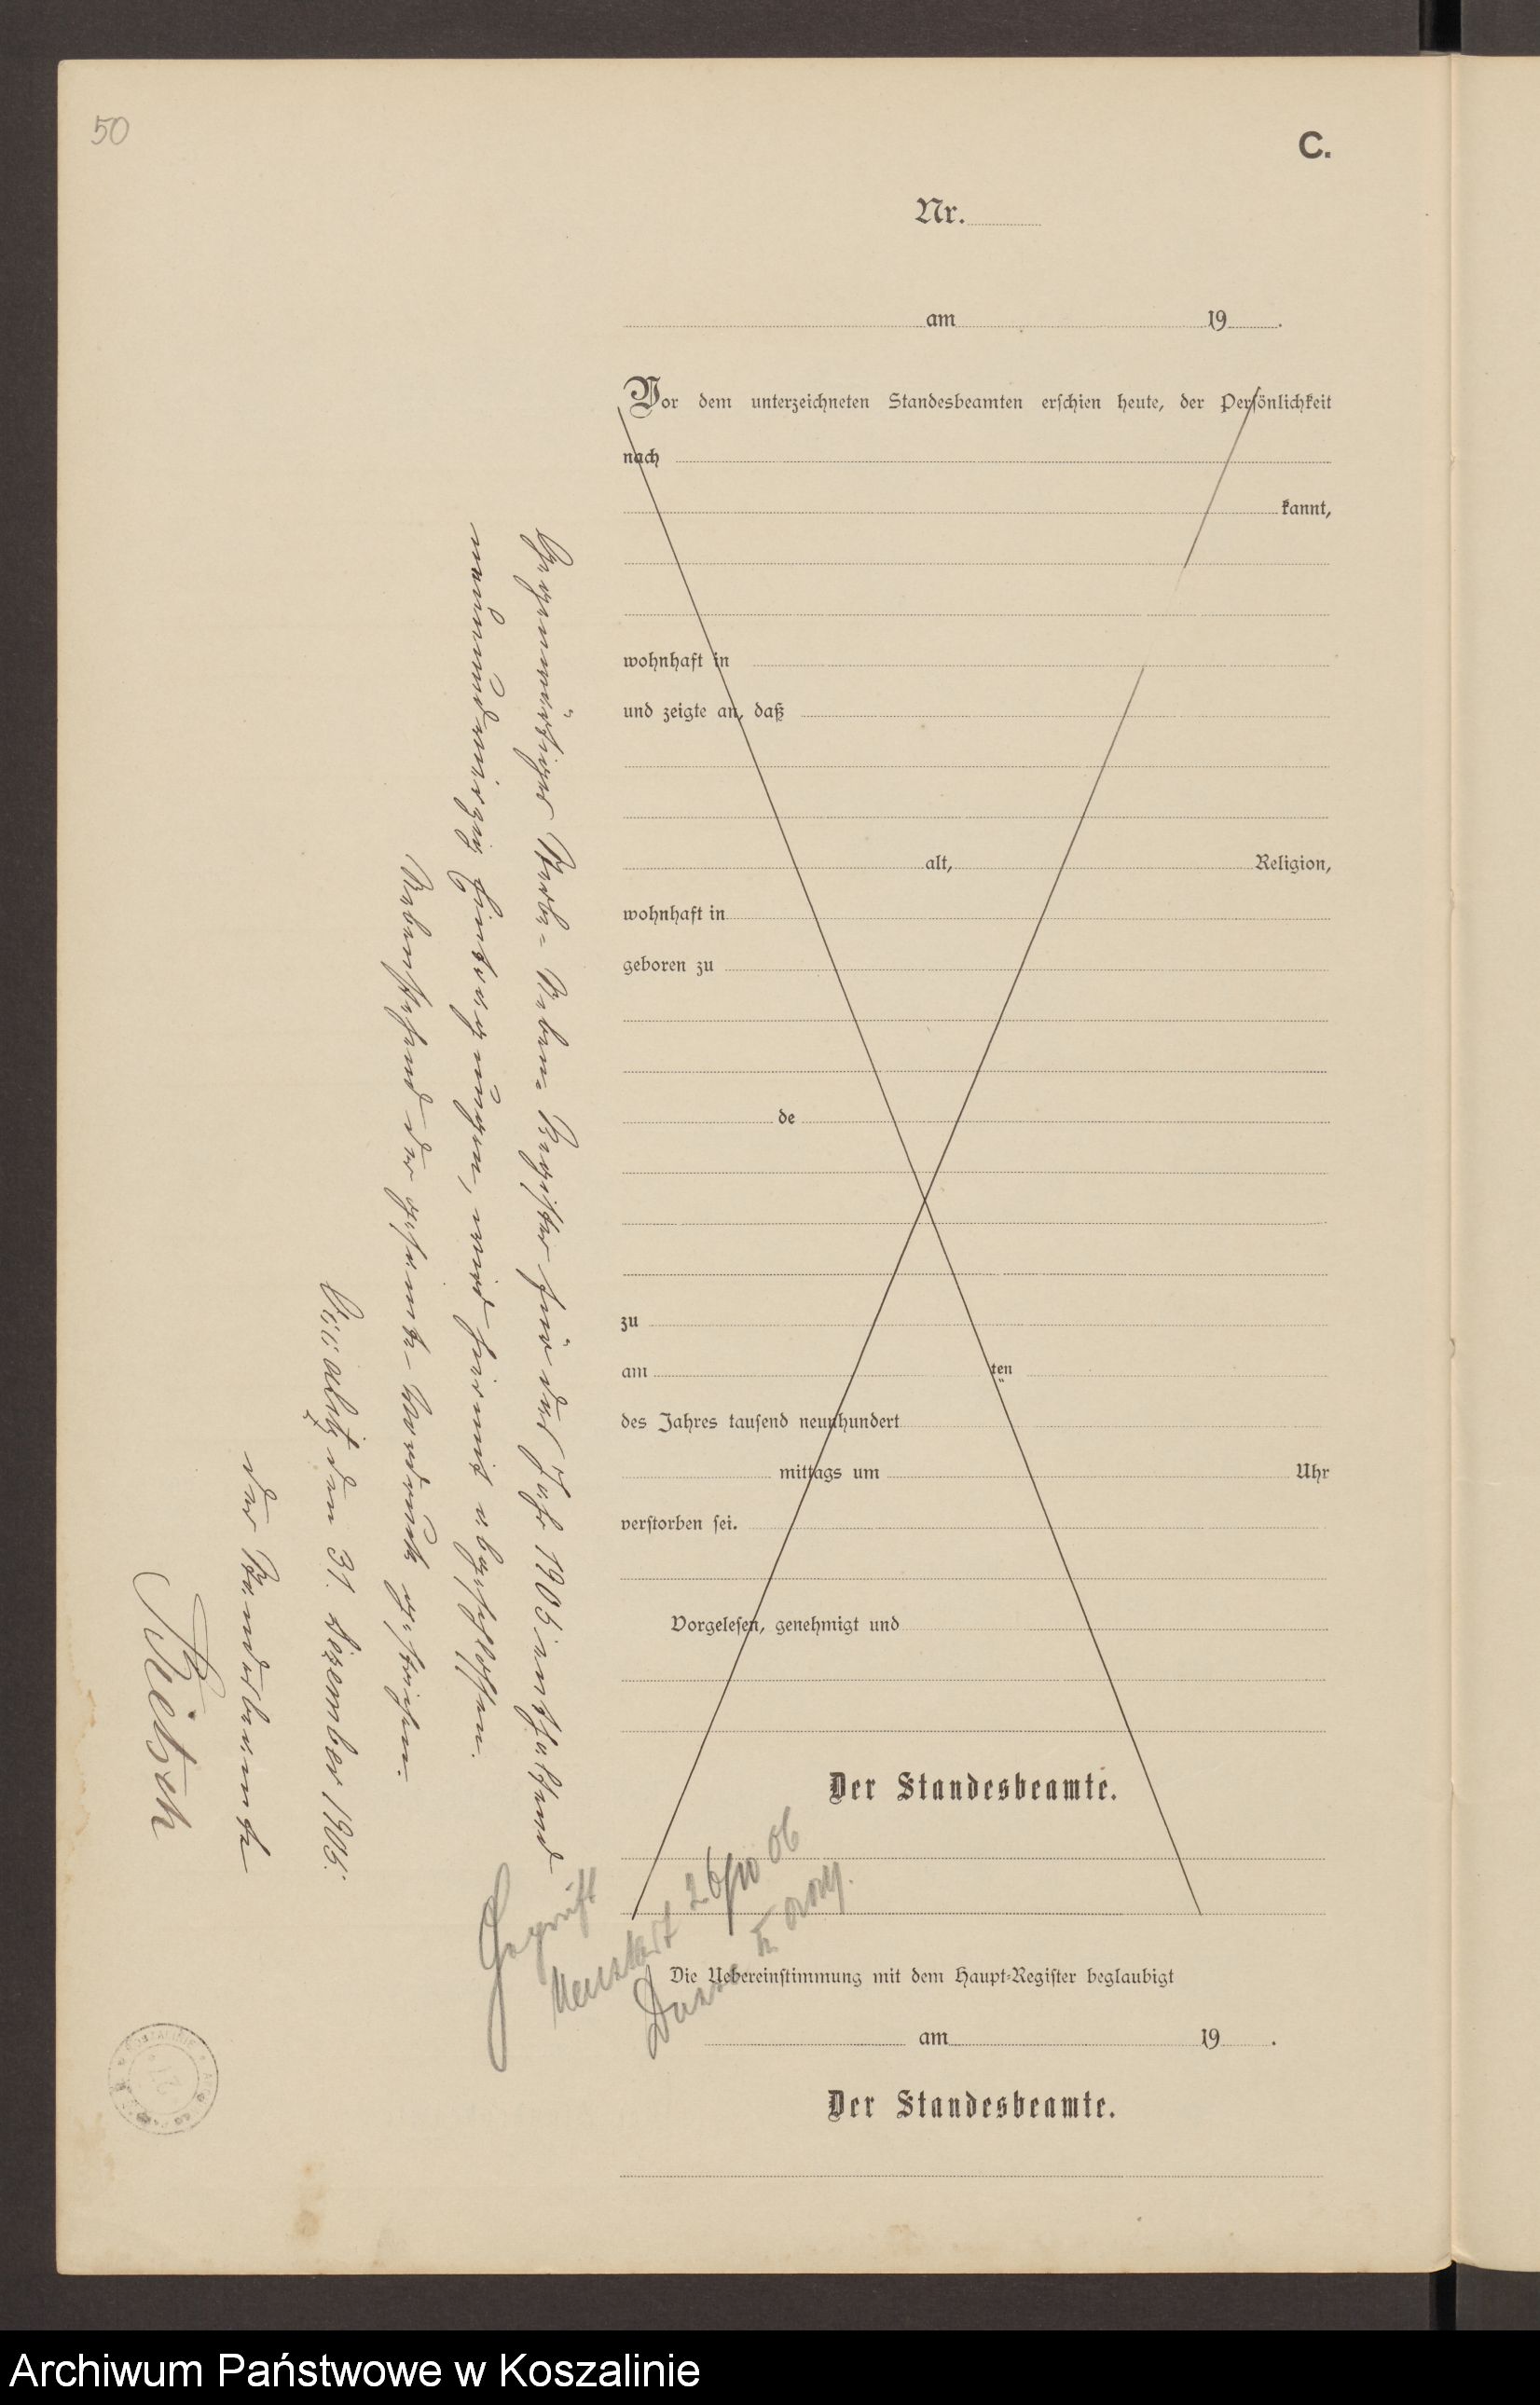 50
C.
Nr.
am 19 .
Vor dem unterzeichneten Standesbeamten erschien heute, der Persönlichkeit
nach
kannt,
wohnhaft in
und zeigte an, daß
alt, Religion,
wohnhaft in
geboren zu
de
zu
am ten
des Jahres tausend neunhundert
mittags um Uhr
verstorben sei.
Vorgelesen, genehmigt und
Der Standesbeamte.
Die Uebereinstimmung mit dem Haupt-Register beglaubigt
am 19 .
Der Standesbeamte.
Gegenwärtiges Sterbe-Neben-Register für das Jahr 1905 enthaltend
neununddreißig Eintragungen, wird hiermit abgeschlossen.
Nebenstehend der gesamte Vordruck gestrichen.
den 31. Dezember 1905.
Der Standesbeamte
Geprüft
Neustadt 26/10 06
Archiwum Państwowe w Koszalinie